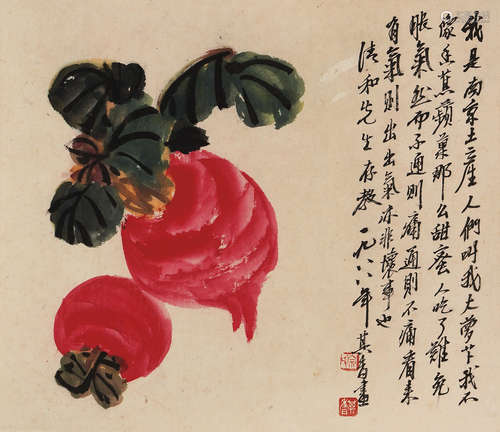 我是南京土產人們叫我大萝卜我不
像香蕉蘋菓那么甜蜜人吃了難免
脹氣然而不通則痛通則不痛看来
有氣則出出氣亦非壞事也
清和先生存教 一九八八年 其香畫